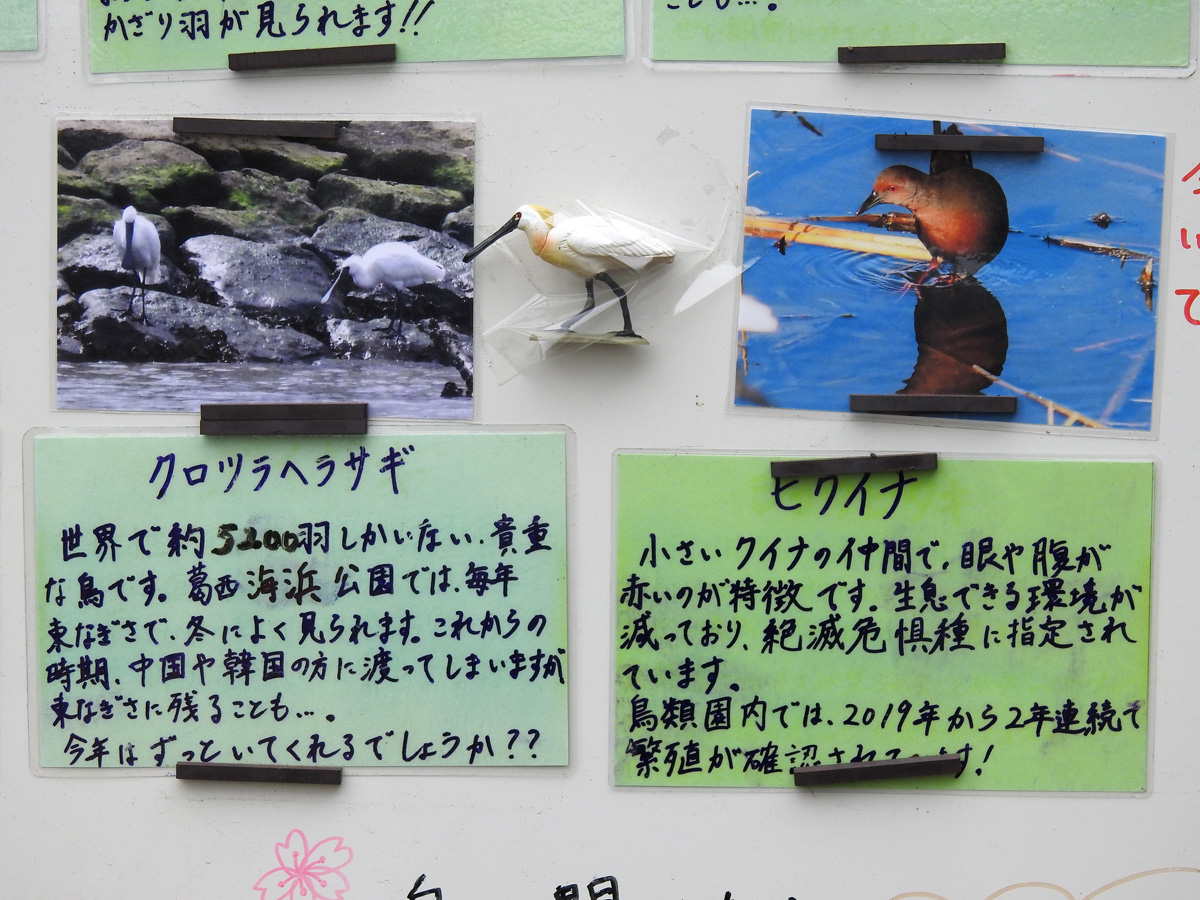 かざり羽が見られます!!
ことも…。
クロツラヘラサギ
世界で約5200羽しかいない、貴重
な鳥です。葛西海浜公園では、毎年
東なぎさで、冬によく見られます。これからの
時期、中国や韓国の方に渡ってしまいますが
東なぎさに残ることも…。
今年はずっといてくれるでしょうか??
ヒクイナ
小さいクイナの仲間で、眼や腹が
赤いのが特徴です。生息できる環境が
減っており、絶滅危惧種に指定され
ています。
鳥類園内では、2019年から2年連続で
繁殖が確認されています!